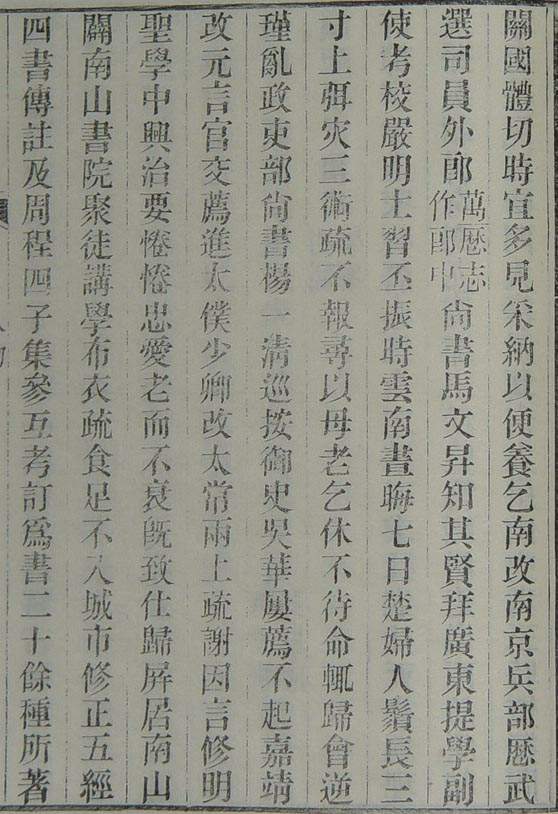 關國體切時宜多見采納以便養乞南改南京兵部歷武
選司員外郎萬歷志作郎中尙書馬文昇知其賢拜廣東提學副
使考校嚴明士習丕振時雲南晝晦七日楚婦人鬚長三
寸上弭灾三術疏不報尋以母老乞休不待命輒歸會逆
瑾亂政吏部尙書楊一淸巡按御史吳華屢薦不起嘉靖
改元言官交薦進太僕少卿改太常兩上疏謝因言修明
聖學中興治要惓惓忠愛老而不衰旣致仕歸屏居南山
闢南山書院聚徒講學布衣疏食足不入城市修正五經
四書傳註及周程四子集參互考訂爲書二十餘種所著